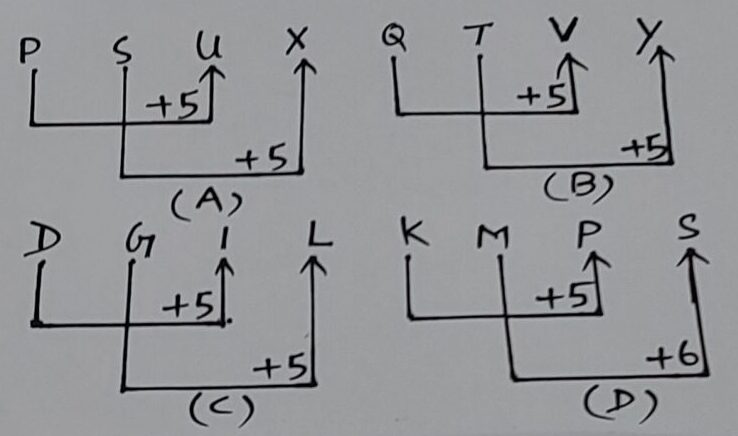 P S U X Q T V Y
+5 +5
+5 +5
(A) (B)
D G I L K M P S
+5 +5
+5 +6
(C) (D)